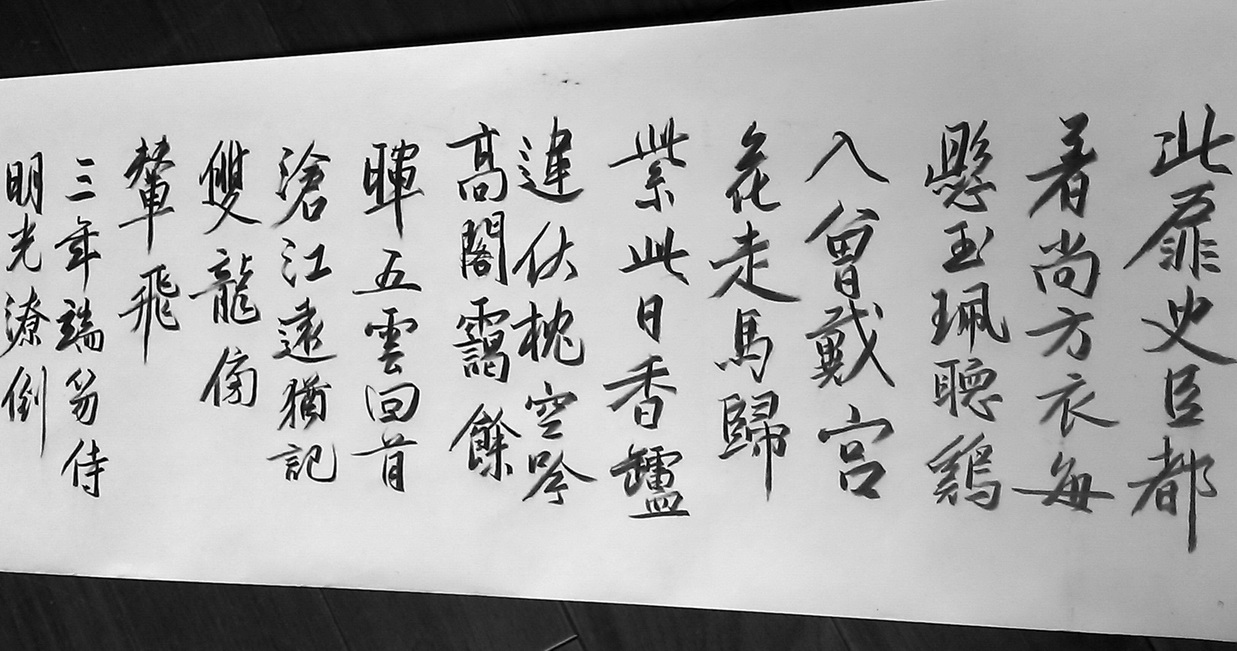 此扉史臣都
着尚方衣每
懸玉珮聽鷄
入曾戴宮
花走馬歸
紫此日香罏
違伏枕空吟
高閣靄餘
暉五雲回首
滄江遠猶記
雙龍傍
輦飛
三年端笏侍
明光潦倒